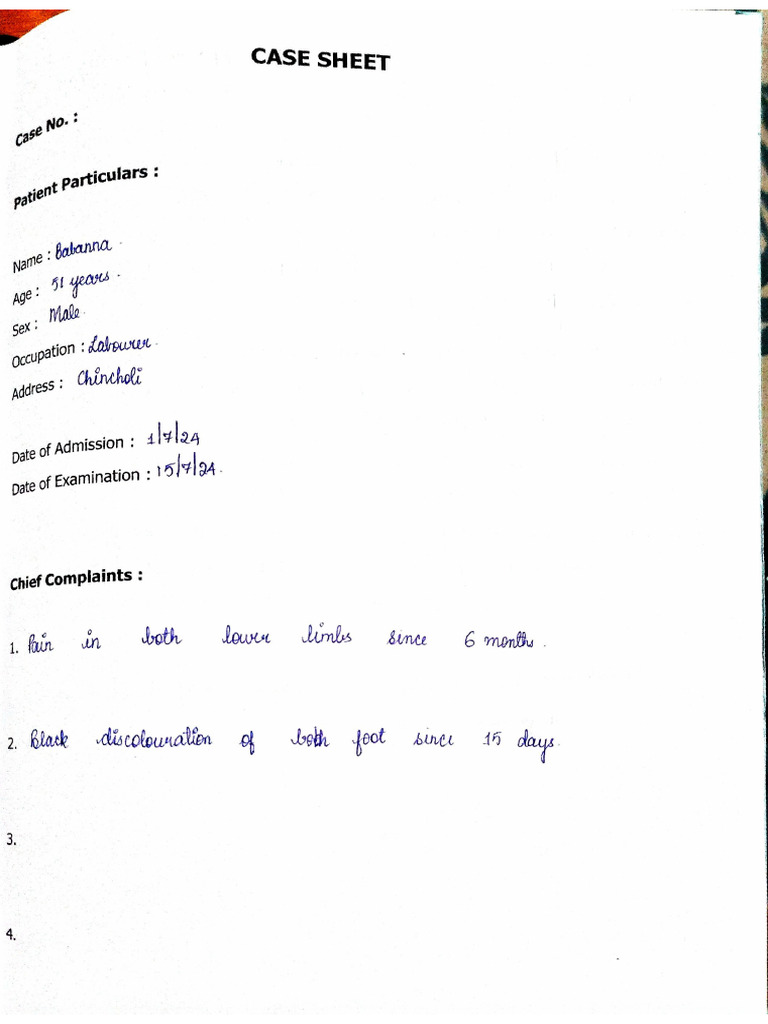 CASE SHEET
Case No. :
Patient Particulars :
Name : Babanna .
Age : 51 years .
Sex : Male .
Occupation : Labourer .
Address : Chincholi
Date of Admission : 1/7/24
Date of Examination : 15/7/24 .
Chief Complaints :
1. Pain in both lower limbs since 6 months .
2. Black discolouration of both foot since 15 days .
3.
4.